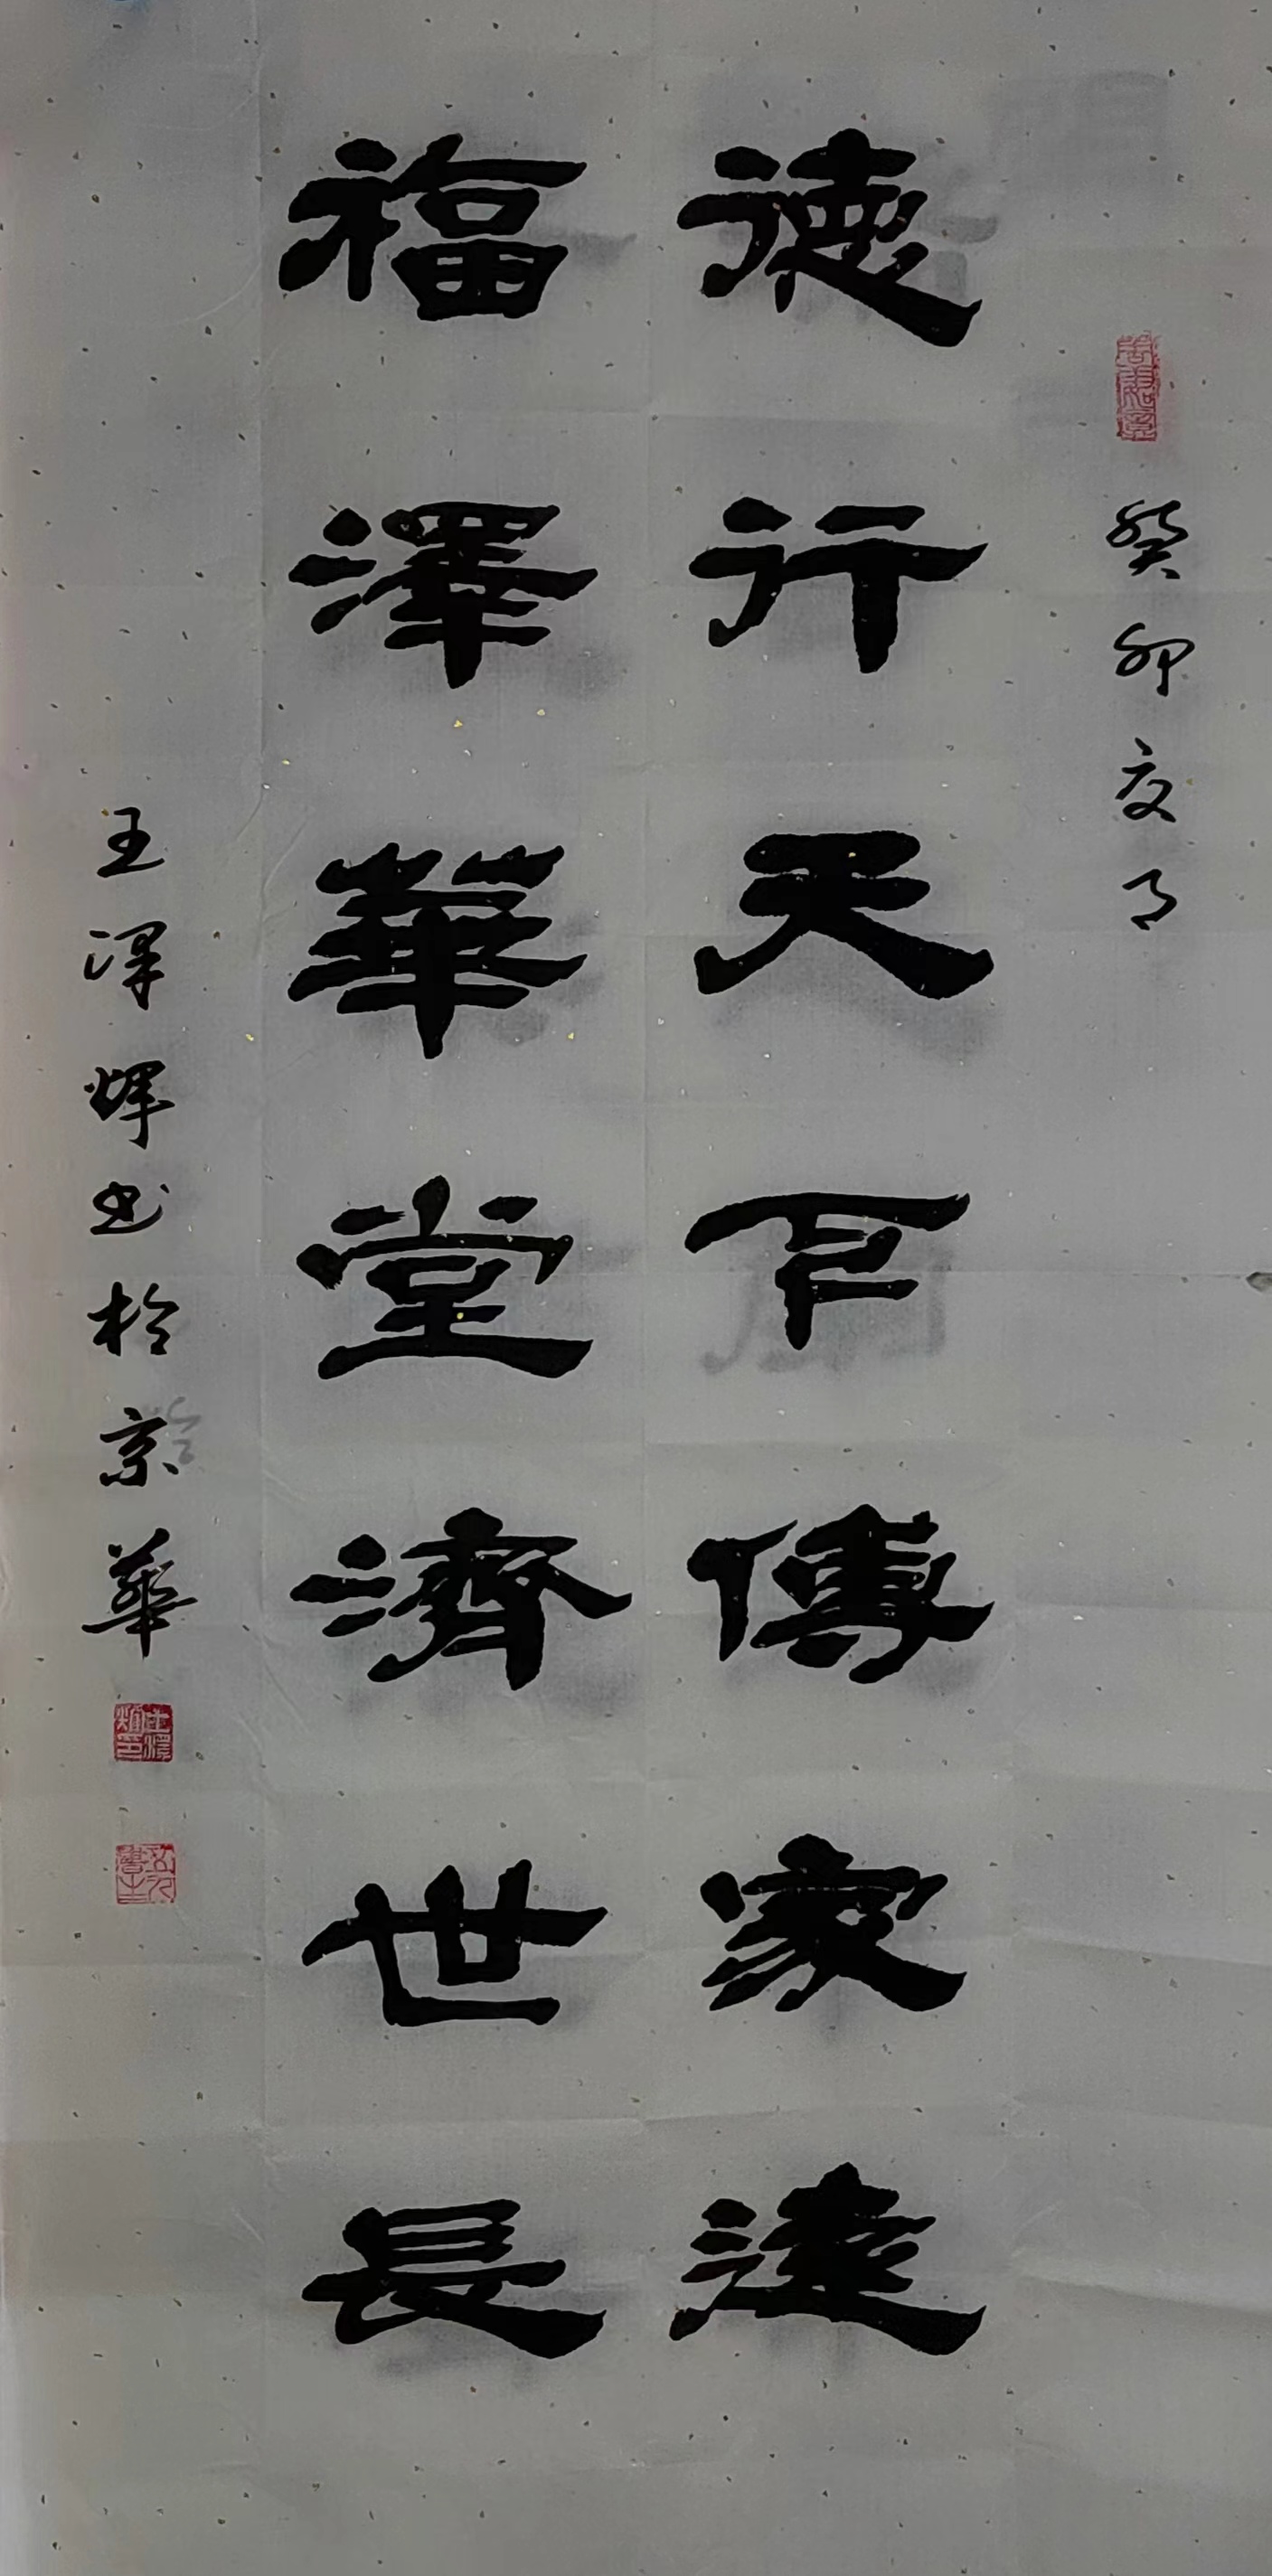 癸卯夏月
德行天下傳家遠
福澤華堂濟世長
王澤煇书於京華